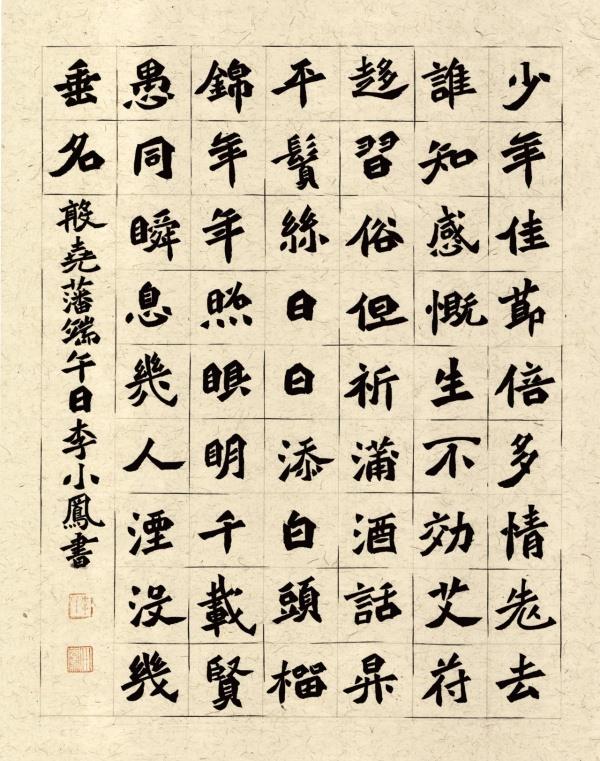 少年佳莭倍多情老去
誰知感慨生不効艾苻
趍習俗但祈蒲酒話昇
平鬢絲日日添白頭榴
錦年年照眼明千載賢
愚同瞬息幾人湮没幾
垂名殷堯藩端午日李小鳳書